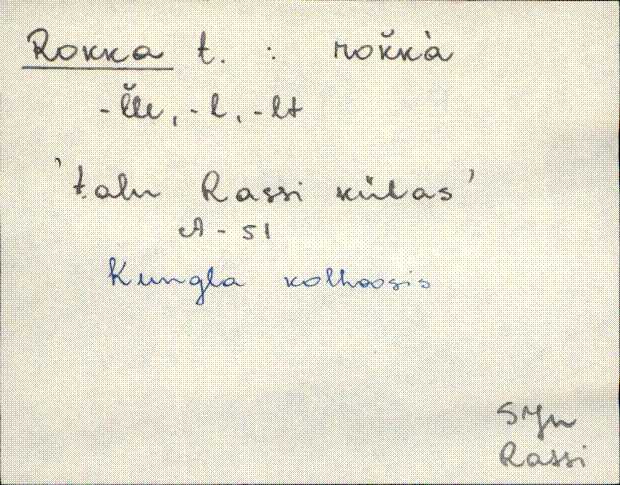 Rokka t. : roǩkà
-l̆le, -l, -lt
'talu Rassi külas'
A - 51
Kungla kolhoosis
Rassi